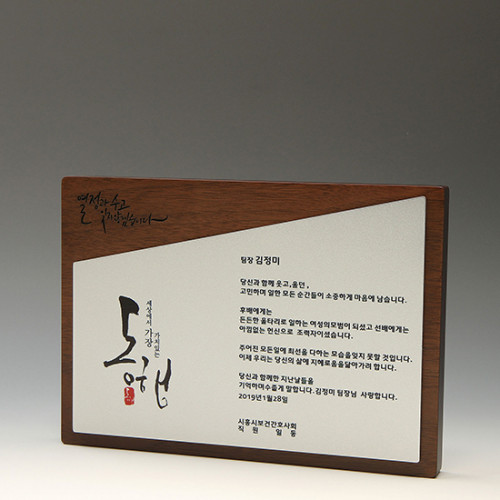 열정과 수고
잊지 않겠습니다
세상에서 가장
가치있는
동행
팀장 김정미
당신과 함께 웃고,울던,
고민하며 일한 모든 순간들이 소중하게 마음에 남습니다.
후배에게는
든든한 울타리로 일하는 여성의모범이 되셨고 선배에게는
아낌없는 헌신으로 조력자이셨습니다.
주어진 모든일에 최선을 다하는 모습을잊지 못할 것입니다.
이제 우리는 당신의 삶에 지혜로움을달아가려 합니다.
당신과 함께한 지난날들을
기억하며수줍게 말합니다.김정미 팀장님 사랑합니다.
2019년1월28일
시흥시보건간호사회
직 원 일 동